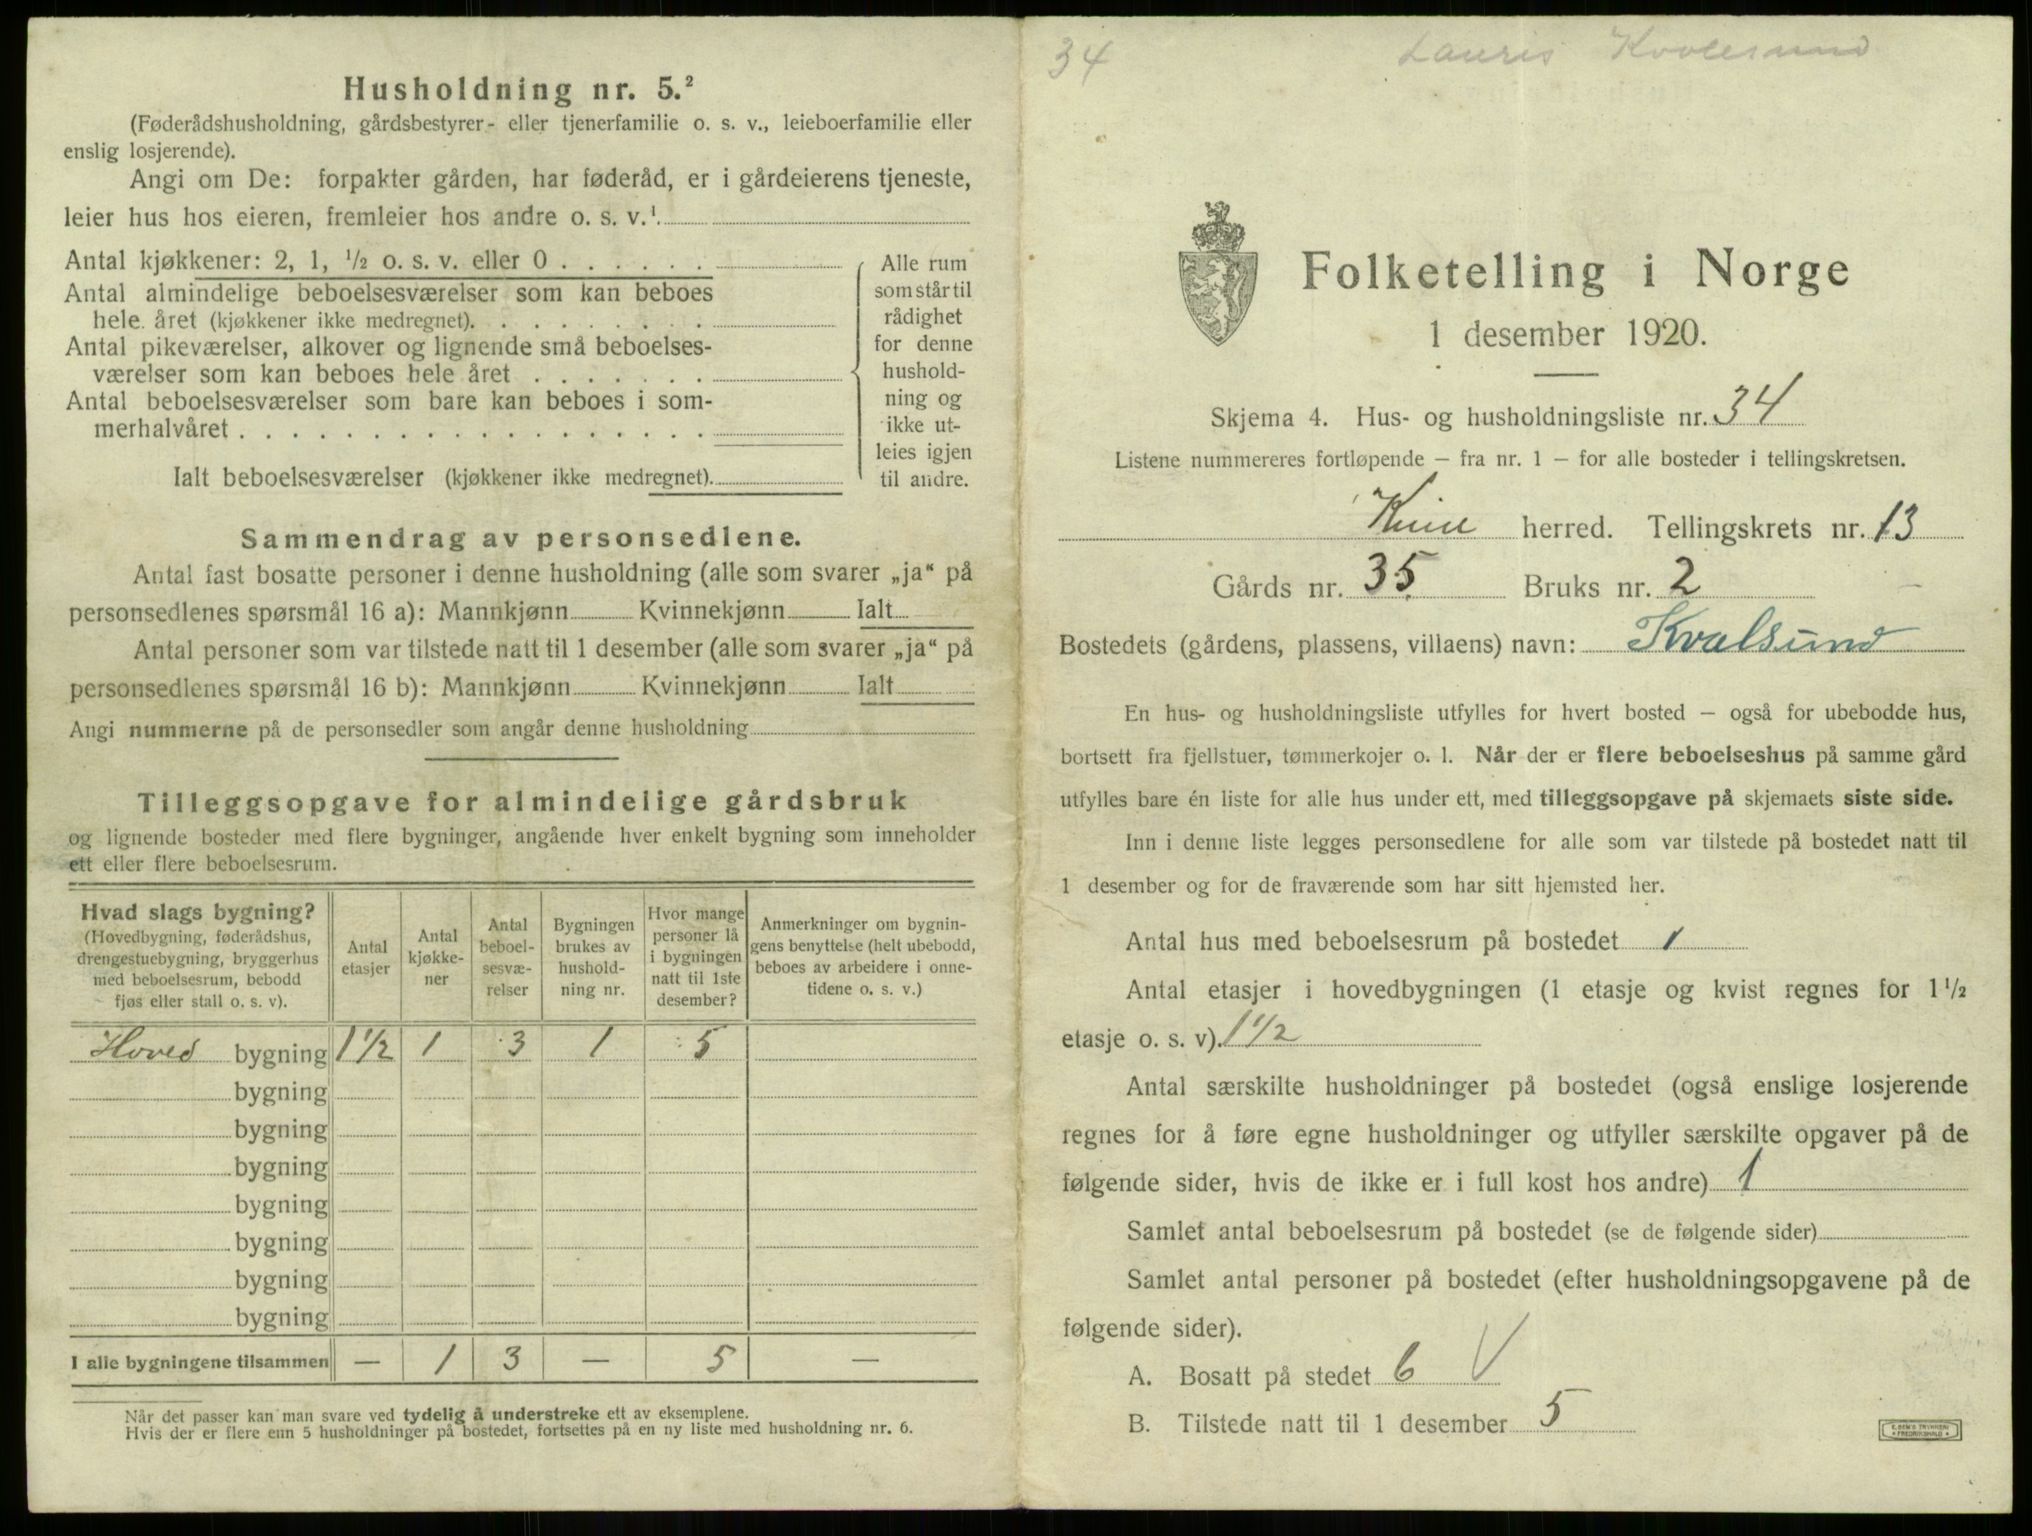 Husholdning nr. 5.²
(Føderådshusholdning, gårdsbestyrer- eller tjenerfamilie o. s. v., leieboerfamilie eller
enslig losjerende).
Angi om De: forpakter gården, har føderåd, er i gårdeierens tjeneste,
leier hus hos eieren, fremleier hos andre o. s. v.¹
Antal kjøkkener: 2, 1, ½ o. s. v. eller 0 . . . . . .
Antal almindelige beboelsesværelser som kan beboes
hele året (kjøkkener ikke medregnet). . . . . . . . .
Antal pikeværelser, alkover og lignende små beboelses-
værelser som kan beboes hele året . . . . . . .
Antal beboelsesværelser som bare kan beboes i som-
merhalvåret . . . . . . . . . . . . . . . . . .
Ialt beboelsesværelser (kjøkkener ikke medregnet).
Alle rum
som står til
rådighet
for denne
hushold-
ning og
ikke ut-
leies igjen
til andre.
Sammendrag av personsedlene.
Antal fast bosatte personer i denne husholdning (alle som svarer „ja“ på
personsedlenes spørsmål 16 a): Mannkjønn Kvinnekjønn Ialt
Antal personer som var tilstede natt til 1 desember (alle som svarer „ja“ på
personsedlenes spørsmål 16 b): Mannkjønn Kvinnekjønn Ialt
Angi nummerne på de personsedler som angår denne husholdning
Tilleggsopgave for almindelige gårdsbruk
og lignende bosteder med flere bygninger, angående hver enkelt bygning som inneholder
ett eller flere beboelsesrum.
Hvad slags bygning?
(Hovedbygning, føderådshus,
drengestuebygning, bryggerhus
med beboelsesrum, bebodd
fjøs eller stall o. s. v).
Antal
etasjer
Antal
kjøkke-
ner
Antal
beboel-
sesvæ-
relser
Bygningen
brukes av
hushold-
ning nr.
Hvor mange
personer lå
i bygningen
natt til 1ste
desember?
Anmerkninger om bygnin-
gens benyttelse (helt ubebodd,
beboes av arbeidere i onne-
tidene o. s. v.)
Hoved bygning 1½ 1 3 1 5
bygning
bygning
bygning
bygning
bygning
bygning
bygning
I alle bygningene tilsammen — 1 3 — 5 —
Når det passer kan man svare ved tydelig å understreke ett av eksemplene.
Hvis der er flere enn 5 husholdninger på bostedet, fortsettes på en ny liste med husholdning nr. 6.
34 Lauris
Folketelling i Norge
1 desember 1920.
Skjema 4. Hus- og husholdningsliste nr. 34
Listene nummereres fortløpende — fra nr. 1 — for alle bosteder i tellingskretsen.
Kinn herred. Tellingskrets nr. 13
Gårds nr. 35 Bruks nr. 2
Bostedets (gårdens, plassens, villaens) navn: Kvalsund
En hus- og husholdningsliste utfylles for hvert bosted — også for ubebodde hus,
bortsett fra fjellstuer, tømmerkojer o. l. Når der er flere beboelseshus på samme gård
utfylles bare én liste for alle hus under ett, med tilleggsopgave på skjemaets siste side.
Inn i denne liste legges personsedlene for alle som var tilstede på bostedet natt til
1 desember og for de fraværende som har sitt hjemsted her.
Antal hus med beboelsesrum på bostedet 1
Antal etasjer i hovedbygningen (1 etasje og kvist regnes for 1½
etasje o. s. v). 1½
Antal særskilte husholdninger på bostedet (også enslige losjerende
regnes for å føre egne husholdninger og utfyller særskilte opgaver på de
følgende sider, hvis de ikke er i full kost hos andre) 1
Samlet antal beboelsesrum på bostedet (se de følgende sider)
Samlet antal personer på bostedet (efter husholdningsopgavene på de
følgende sider).
A. Bosatt på stedet 6 V
B. Tilstede natt til 1 desember 5